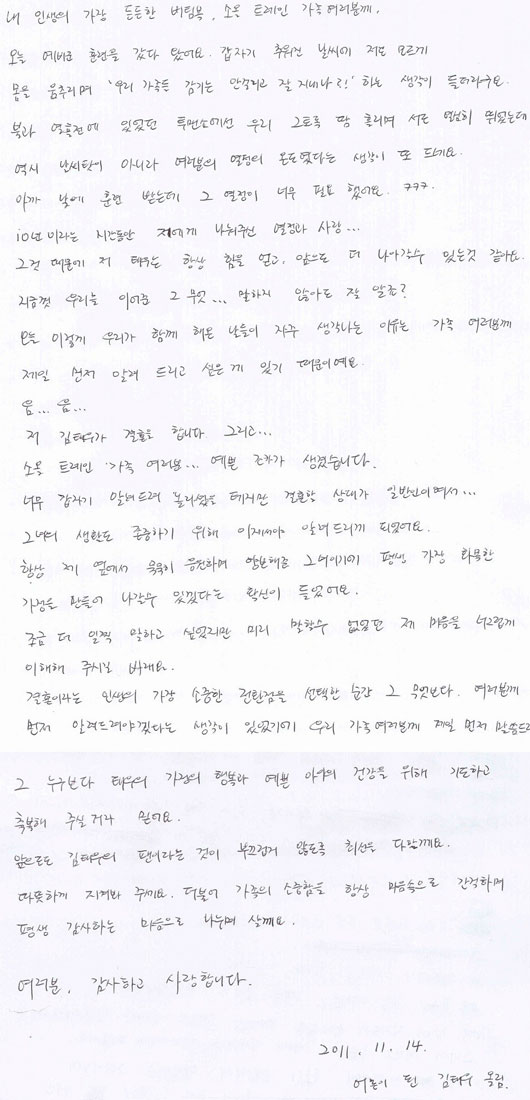 내 인생의 가장 든든한 버팀목, 소울 트레인 가족 여러분께.
오늘 예비군 훈련을 갔다 왔어요. 갑자기 추워진 날씨에 저도 모르게
몸을 움추리며 '우리 가족들 감기는 안걸리고 잘 지내나?!' 하는 생각이 들더라구요.
불과 열흘전에 있었던 투맨쇼에선 우리 그토록 땀 흘리며 서로 열심히 뛰었는데
역시 난씨탓이 아니라 여러분의 열정의 온도였다는 생각이 또 드네요.
아까 낮에 훈련 받는데 그 열정이 너무 필요 했어요. ㅋㅋㅋ.
10년이라는 시간동안 저에게 나눠주신 열정과 사랑...
그것 때문에 저 태우는 항상 힘을 얻고, 앞으로 더 나아갈수 있는것 같아요.
지금껏 우리를 이어준 그 무엇... 말하지 않아도 잘 알죠?
오늘 이렇게 우리가 함께 해온 날들이 자꾸 생각나는 이유는 가족 여러분께
제일 먼저 알려 드리고 싶은 게 있기 때문이예요.
음... 음...
저 김태우가 결혼을 합니다 그리고...
소울 트레인 가족 여러분... 예쁜 조카가 생겼습니다.
너무 갑자기 알려드려 놀라셨을 테지만 결혼할 상대가 일반인이여서...
그녀의 생활도 존중하기 위해 이제서야 알려드리게 되었어요.
항상 제 옆에서 묵묵히 응원하며 양보해준 그녀이기에 평생 가장 화목한
가정을 만들어 나갈수 있겠다는 확신이 들었어요.
조금 더 일찍 말하고 싶었지만 미리 말할수 없었던 제 마음을 너그럽게
이해해 주시길 바래요.
결혼이라는 인생의 가장 소중한 전환점을 선택한 순간 그 무엇보다. 여러분께
먼저 알려드려야겠다는 생각이 있었기에 우리 가족여러분께 제일 먼저 말씀드
그 누구보다 태우의 가정의 행복과 예쁜 아이의 건강을 위해 기도하고
축복해 주실거라 믿어요.
앞으로도 김태우의 팬이라는 것이 부끄럽지 않도록 최선을 다할께요.
따뜻하게 지켜봐 주세요. 더불어 가족의 소중함을 항상 마음속으로 간직하며
평생 감사하는 마음으로 나누며 살께요.
여러분, 감사하고 사랑합니다.
2011. 11. 14.
어른이 된 김태우 올림.